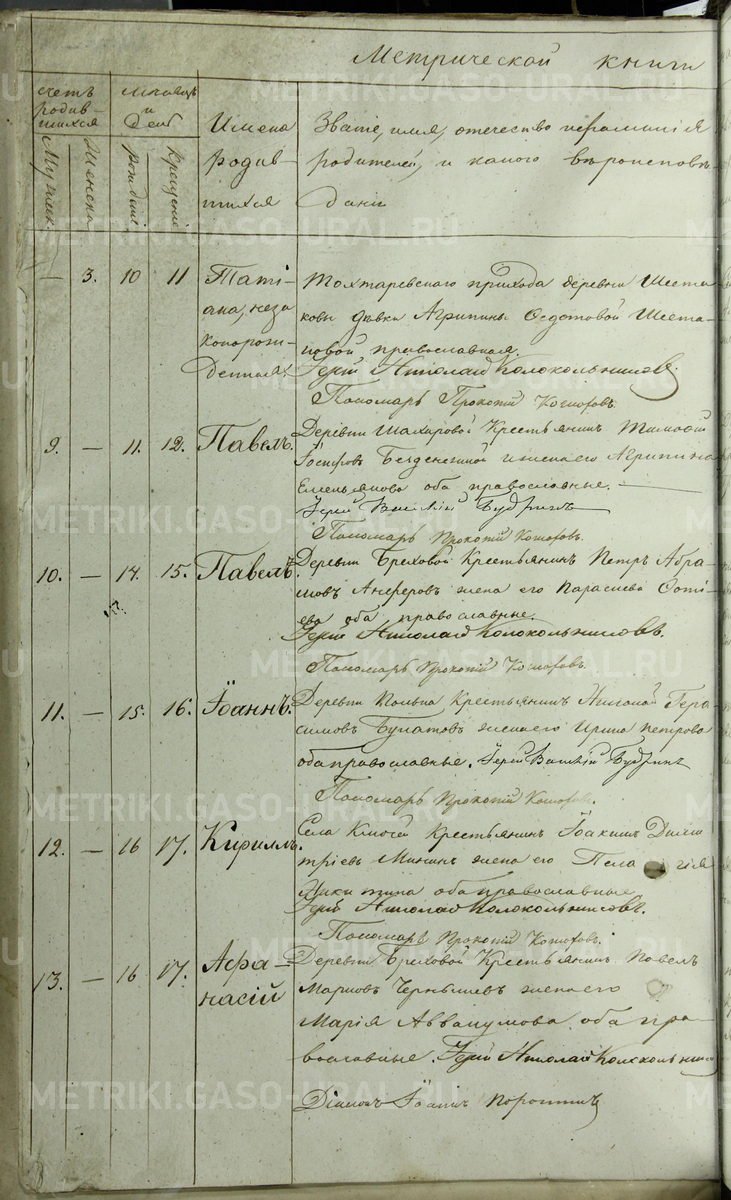 Метрической книги
Счетъ родив-шихся
Мѣсяцъ и день
Имена родив-шихся
Званіе, имя, отечество и фамилія
родителей, и какого вѣроисповѣ-
данія
Мужеск.
Женска
Рожденія
Крещенія
— 3. 10 11 Таті-
ана, неза
конорож-
денная
Тохтаревскаго прихода деревни Шеста
ковы дѣвки Агрипины Ѳедотовой Шеста-
ковой, православная.
Іерей Николай Колокольниковъ.
Пономарь Прокопій
9. — 11. 12. Павелъ.
Деревни Шахаровой Крестьянинъ Тимоѳей
Іосифовъ жена его Агрипина
Емельянова оба православные.
Іерей Василій Будринъ
Пономарь Прокопій
10. — 14. 15. Павелъ.
Деревни Бреховой Крестьянинъ Петръ Абра
мовъ жена его Параскева Фоті-
ева оба православные.
Іерей Николай Колокольниковъ.
Пономарь Прокопій
11. — 15. 16. Іоаннъ.
Деревни Крестьянинъ Николай Гера
симовъ Булатовъ жена его Ирина Петрова
оба православные. Іерей Василій Будринъ
Пономарь Прокопій
12. — 16 17. Кириллъ.
Села Ключей Крестьянинъ Іоакимъ Дими
тріевъ Мининъ жена его Пелагія
Никитина оба православные
Іерей Николай Колокольниковъ.
Пономарь Прокопій
13. — 16 17. Афа-
насій
Деревни Бреховой Крестьянинъ Павелъ
Марковъ Чернышевъ жена его
Марія Аввакумова оба пра-
вославные Іерей Николай Колокольник
Діаконъ Іоаннъ
METRIKI.GASO-URAL.RU